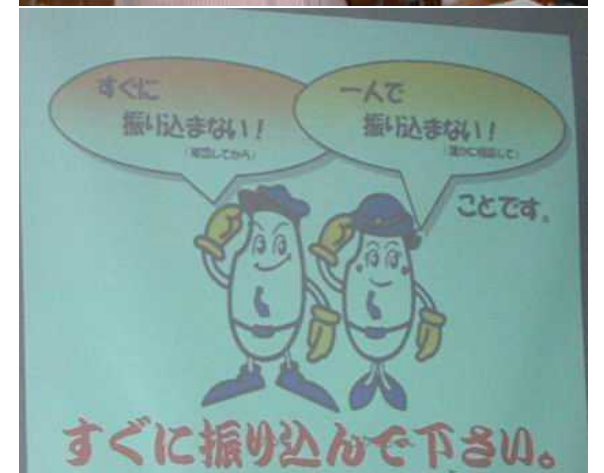 すぐに
振り込まない！
（確認してから）
一人で
振り込まない！
（誰かに相談して）
ことです。
すぐに振り込んで下さい。